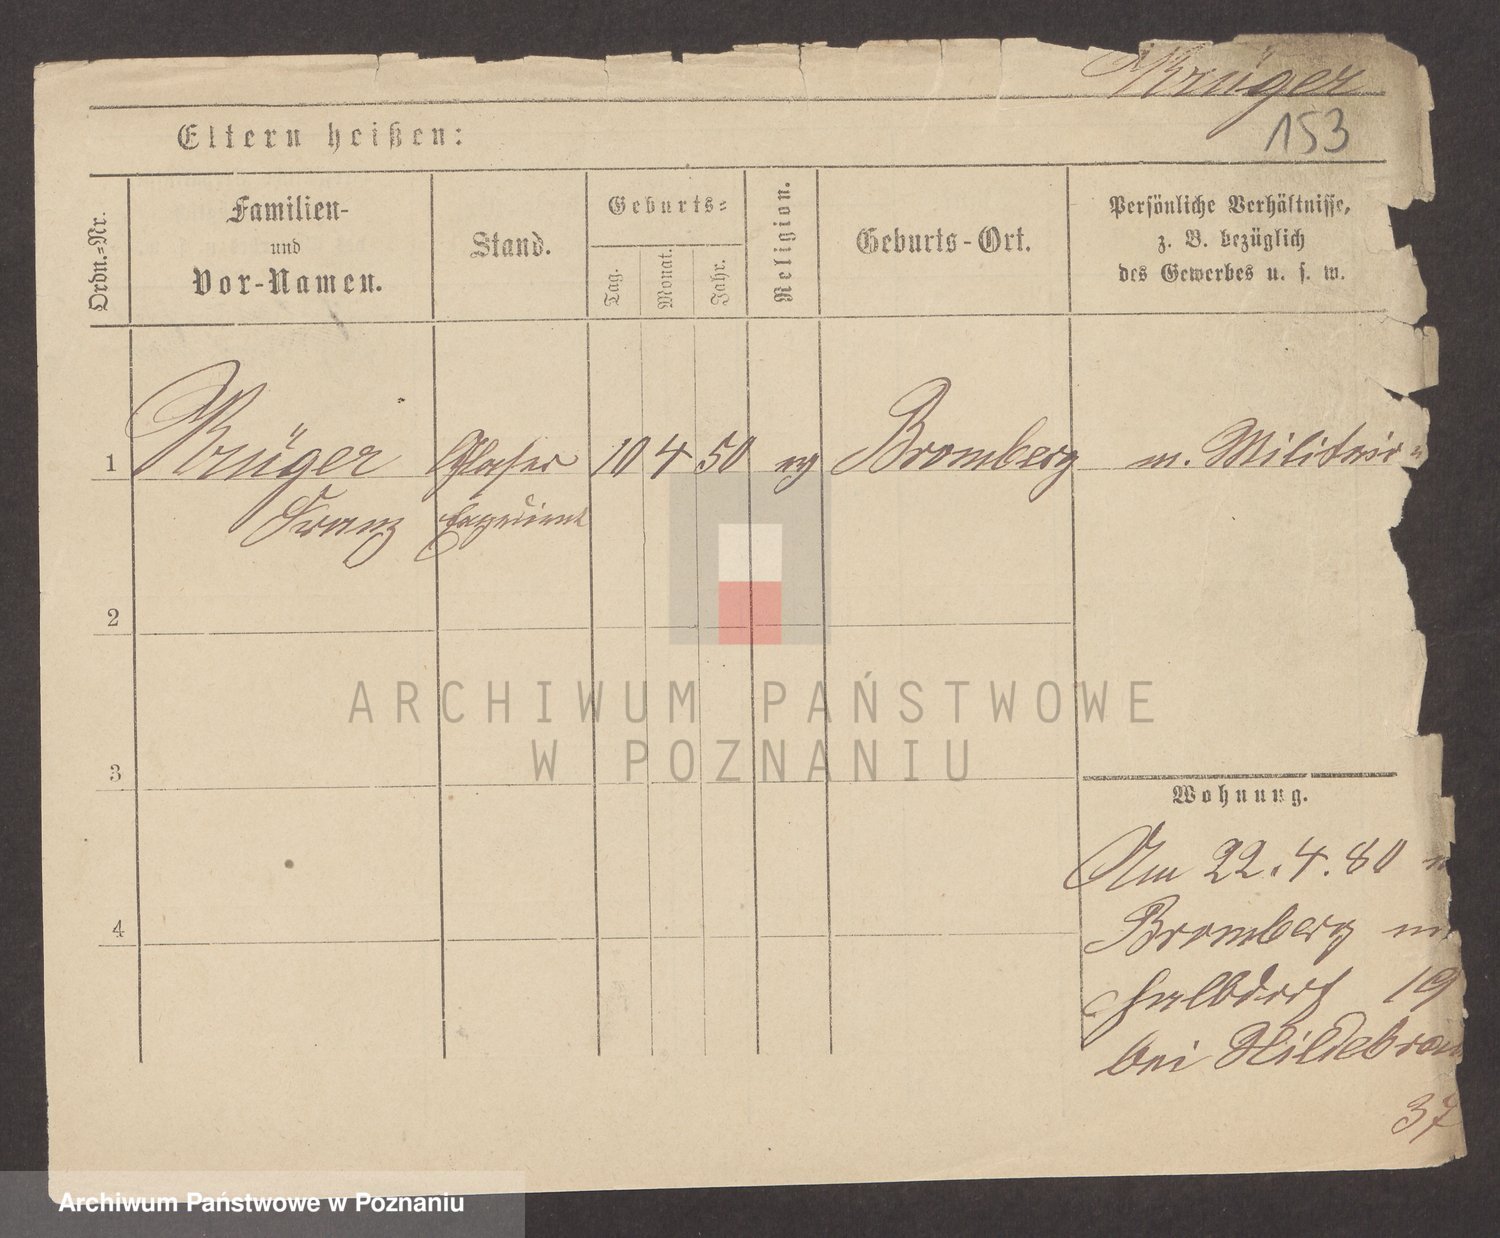 Krüger
153
Eltern heißen:
Ordn.-Nr.
Familien-
und
Vor-Namen.
Stand.
Geburts-
Tag.
Monat.
Jahr.
Religion.
Geburts-Ort.
Persönliche Verhältnisse,
z. B. bezüglich
des Gewerbes u. s. w.
1 Krüger Glaser 10 4 50 ev Bromberg m. Militair
Franz
2
3
4
Wohnung.
Am 22.4.80
Bromberg
Halbdorf 19
bei Hildebran
37
ARCHIWUM PAŃSTWOWE
W POZNANIU
Archiwum Państwowe w Poznaniu